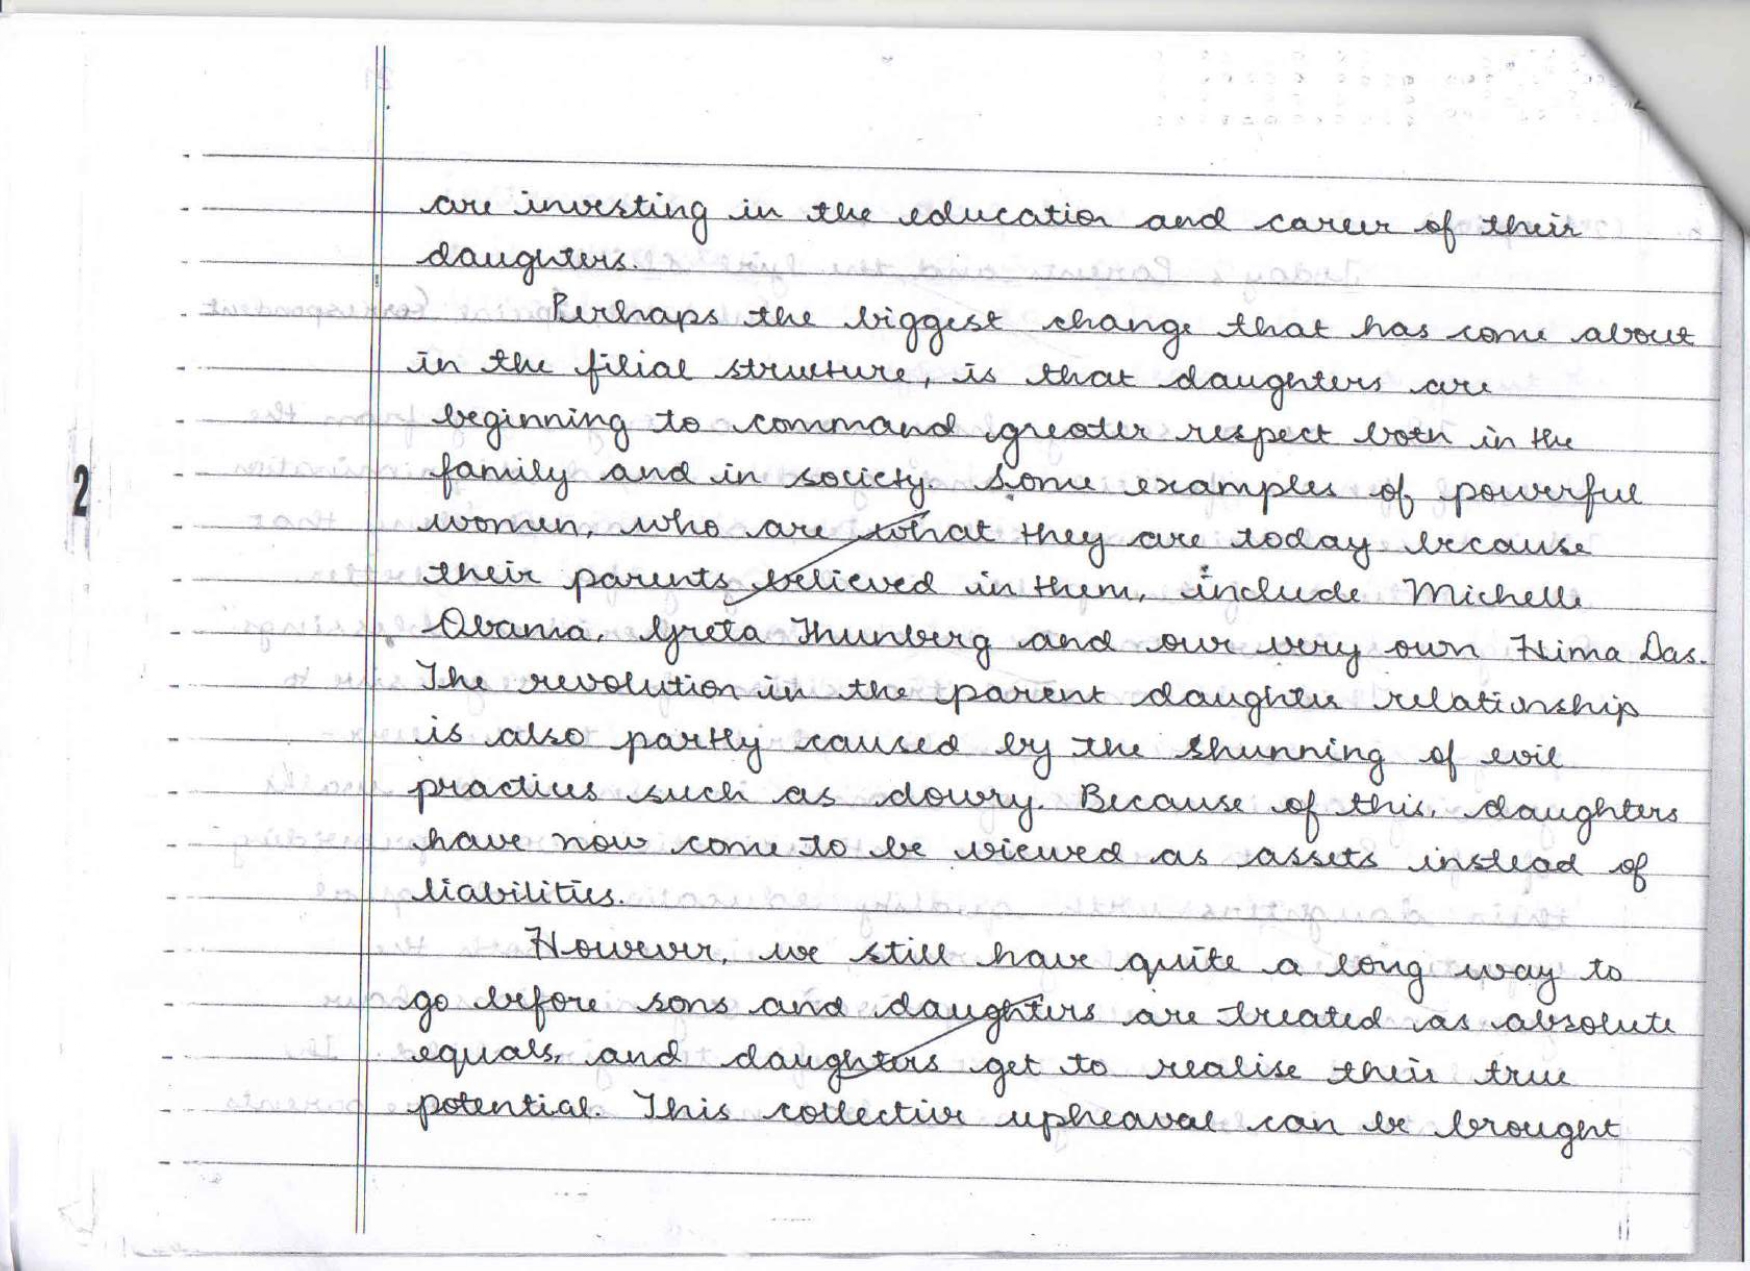 are investing in the education and career of their
daughters.
Perhaps the biggest change that has come about
in the filial structure, is that daughters are
beginning to command greater respect both in the
family and in society. Some examples of powerful
women, who are what they are today because
their parents believed in them, include Michelle
Obama, Greta Thunberg and our very own Hima Das.
The revolution in the parent daughter relationship
is also partly caused by the shunning of evil
practices such as dowry. Because of this, daughters
have now come to be viewed as assets instead of
liabilities.
However, we still have quite a long way to
go before sons and daughters are treated as absolute
equals, and daughters get to realise their true
potential. This collective upheaval can be brought
2